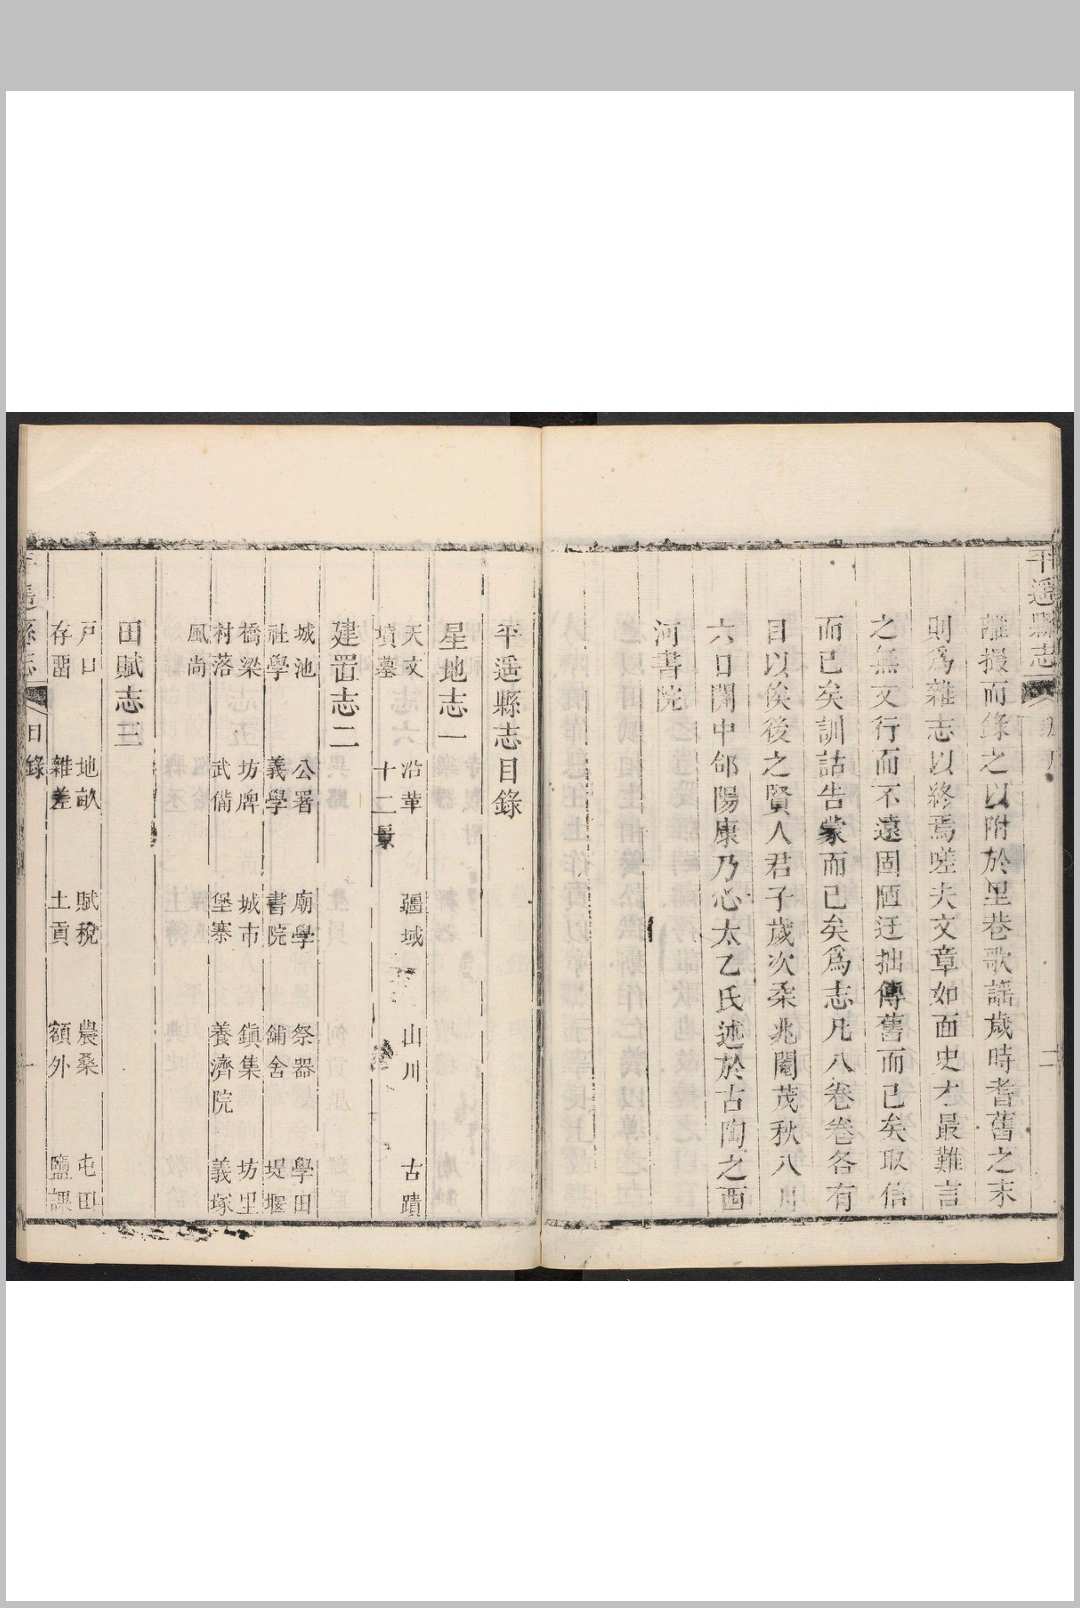 平遥縣志
二
離撮而錄之以附於里巷歌謡歲時耆舊之末
則爲雜志以終焉嗟夫文章如面史才最難言
之無文行而不遠固陋迂拙傳舊而已矣取信
而已矣訓詁告蒙而已矣爲志凡八卷卷各有
目以俟後之賢人君子歲次柔兆閹茂秋八月
六日關中郃陽康乃心太乙氏述於古陶之西
河書院
平遥縣志目錄
星地志一
天文 沿革 疆域 山川 古蹟
墳墓 十二景
建置志二
城池 公署 廟學 祭器 學田
社學 義學 書院 鋪舍 堤堰
橋梁 坊牌 城市 鎮集 坊里
村落 武備 堡寨 養濟院 義塚
風尚
田賦志三
戸口 地畝 賦稅 農桑 屯田
存留 雜差 土貢 額外 鹽課
平遥縣志 目錄 一